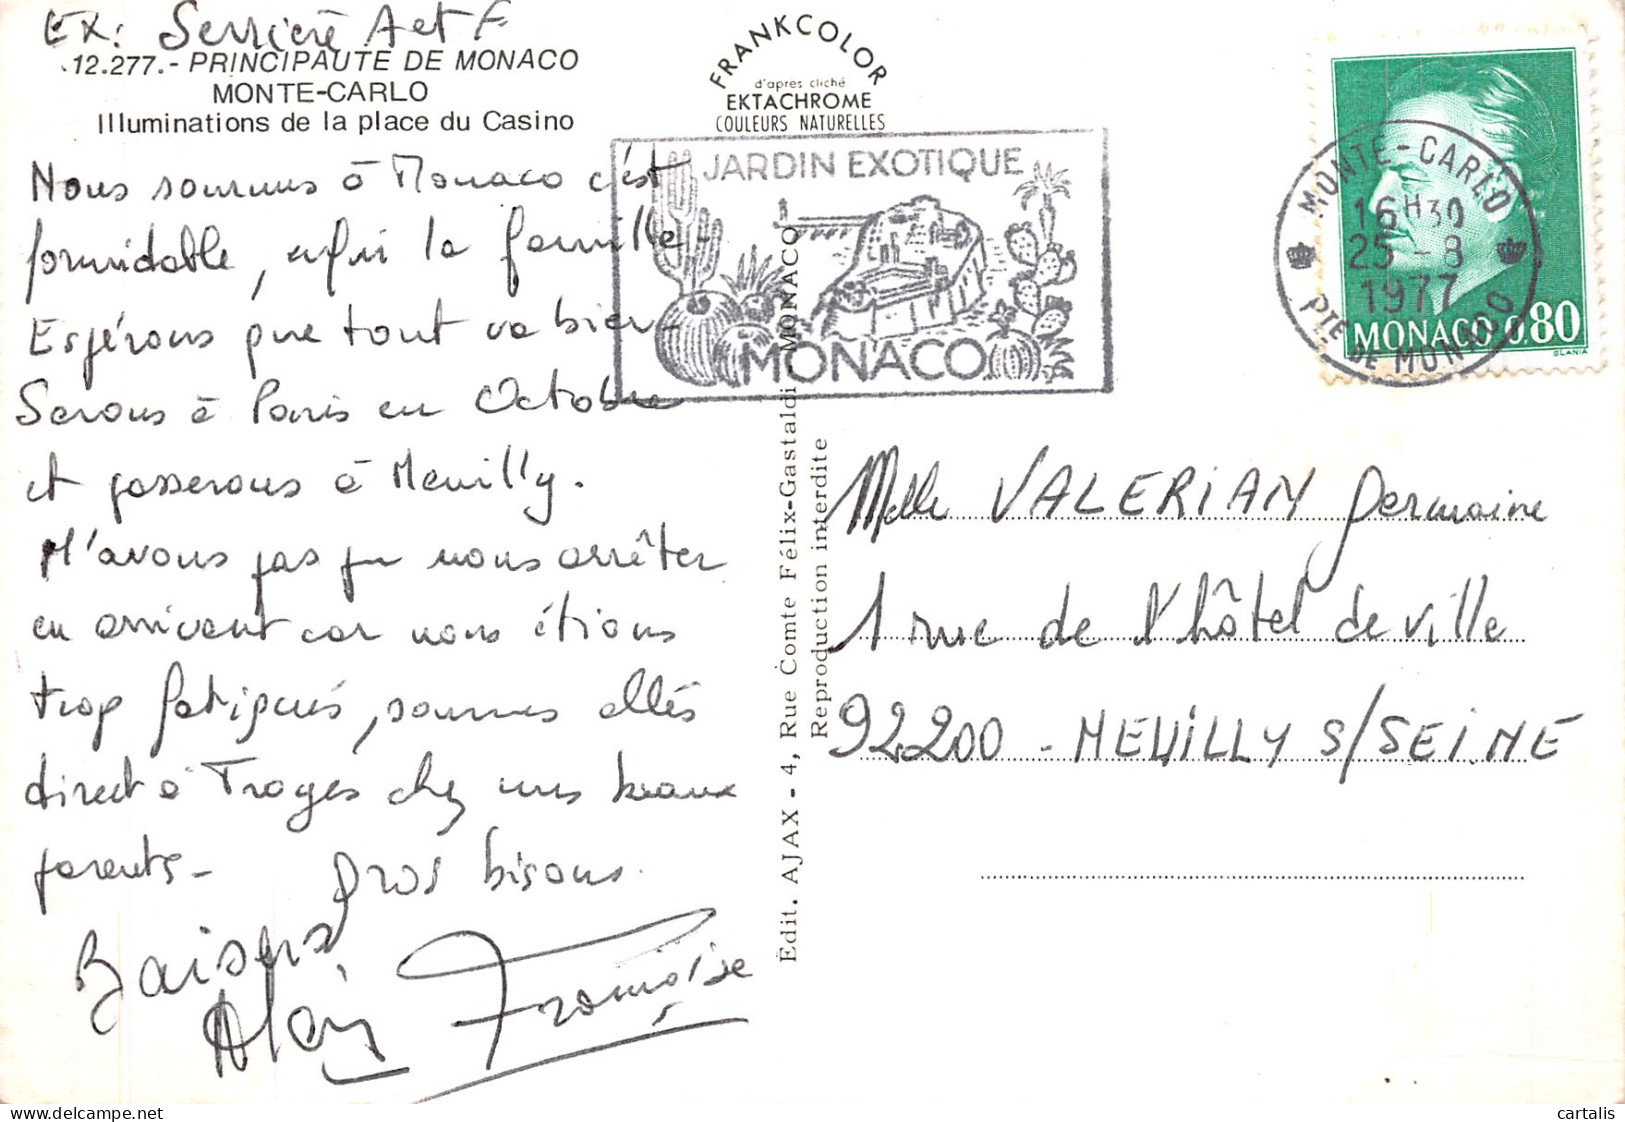 EX: Serrière A et F
12.277.- PRINCIPAUTE DE MONACO
MONTE-CARLO
Illuminations de la place du Casino
Nous sommes à Monaco c'est
formidable, enfin la famille.
Espérons que tout va bien -
Serons à Paris en Octobre
et passerons à Neuilly.
N'avons pas pu nous arrêter
en arrivant car nous étions
trop fatigués, sommes allés
direct à Troyes chez mes beaux
parents - Gros bisous.
Baisers
Alain Françoise
FRANKCOLOR
d'après cliché
EKTACHROME
COULEURS NATURELLES
JARDIN EXOTIQUE
MONACO
Édit. AJAX - 4, Rue Comte Félix-Gastaldi MONACO
Reproduction interdite
MONTE-CARLO
16H30
25 - 8
1977
PTE DE MONACO
MONACO 0.80
SLANIA
Melle VALERIAN Germaine
1 rue de l'hôtel de ville
92200 - NEUILLY S/SEINE
cartalis